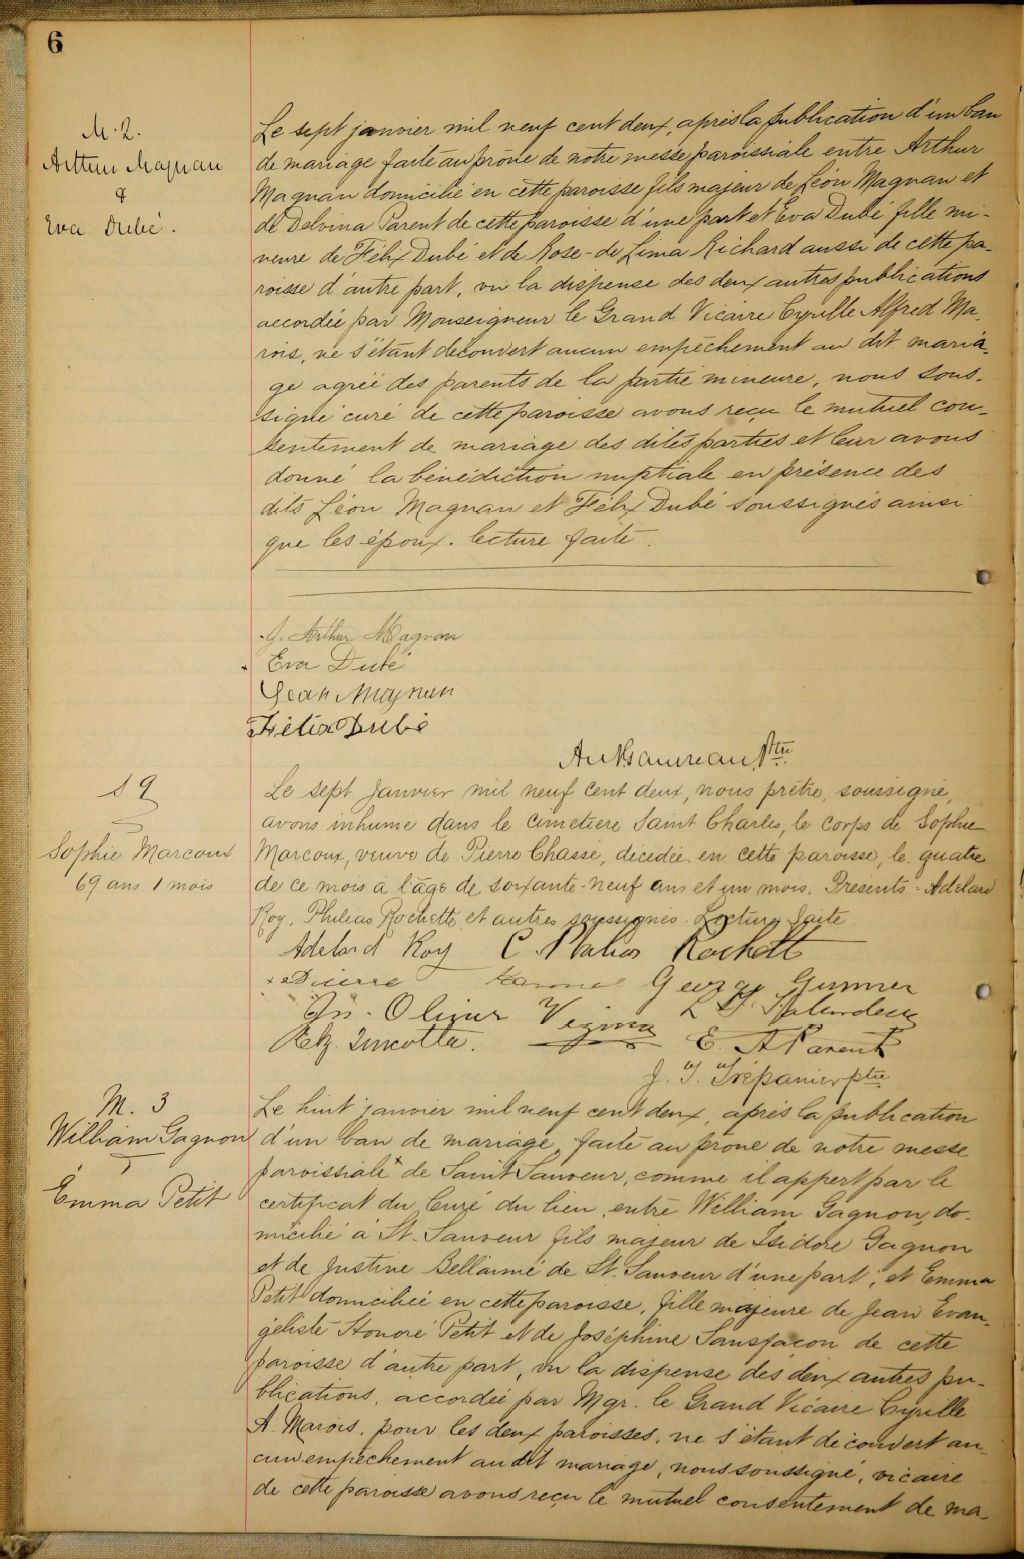 6
M. 2.
Arthur Magnan
&
Eva Dubé.
Le sept janvier mil neuf cent deux, après la publication d'un ban
de mariage faite au prône de notre messe paroissiale entre Arthur
Magnan domicilié en cette paroisse fils majeur de Léon Magnan et
de Delvina Parent de cette paroisse d'une part et Eva Dubé fille mi-
neure de Félix Dubé et de Rose-de Lima Richard aussi de cette pa-
roisse d'autre part, vu la dispense des deux autres publications
accordée par Monseigneur le Grand Vicaire Cyrille Alfred Ma-
rois, ne s'étant découvert aucun empêchement au dit maria-
ge agréé des parents de la partie mineure, nous sous-
signé curé de cette paroisse avons reçu le mutuel con-
sentement de mariage des dites parties et leur avons
donné la bénédiction nuptiale en présence des
dits Léon Magnan et Félix Dubé soussignés ainsi
que les époux. lecture faite.
J. Arthur Magnan
Eva Dubé
Magnan
Félix Dubé
Ptre
S 9
Sophie Marcoux
69 ans 1 mois
Le sept Janvier mil neuf cent deux, nous prêtre, soussigné,
avons inhumé dans le cimetière Saint Charles, le corps de Sophie
Marcoux, veuve de Pierre Chassé, décédée en cette paroisse, le quatre
de ce mois à l'âge de soixante-neuf ans et un mois. Présents - Adélard
Roy, Philéas Rochette et autres soussignés. Lecture faite.
Adelard Roy C. Rochett
Pierre George
Olivier Vezina
Turcotte. E. A Parent
J. T. Trépanier ptre
M. 3
William Gagnon
&
Emma Petit
Le huit janvier mil neuf cent deux, après la publication
d'un ban de mariage, faite au prône de notre messe
paroissiale x de Saint Sauveur, comme il appert par le
certificat du Curé du lieu, entre William Gagnon, do-
micilié à St. Sauveur fils majeur de Isidore Gagnon
et de Justine Bellaimé de St. Sauveur d'une part; et Emma
Petit domiciliée en cette paroisse, fille majeure de Jean Evan-
géliste Honoré Petit et de Joséphine Sansfaçon de cette
paroisse d'autre part, vu la dispense des deux autres pu-
blications, accordée par Mgr. le Grand Vicaire Cyrille
A. Marois, pour les deux paroisses, ne s'étant découvert au-
cun empêchement au dit mariage, nous soussigné, vicaire
de cette paroisse avons reçu le mutuel consentement de ma-